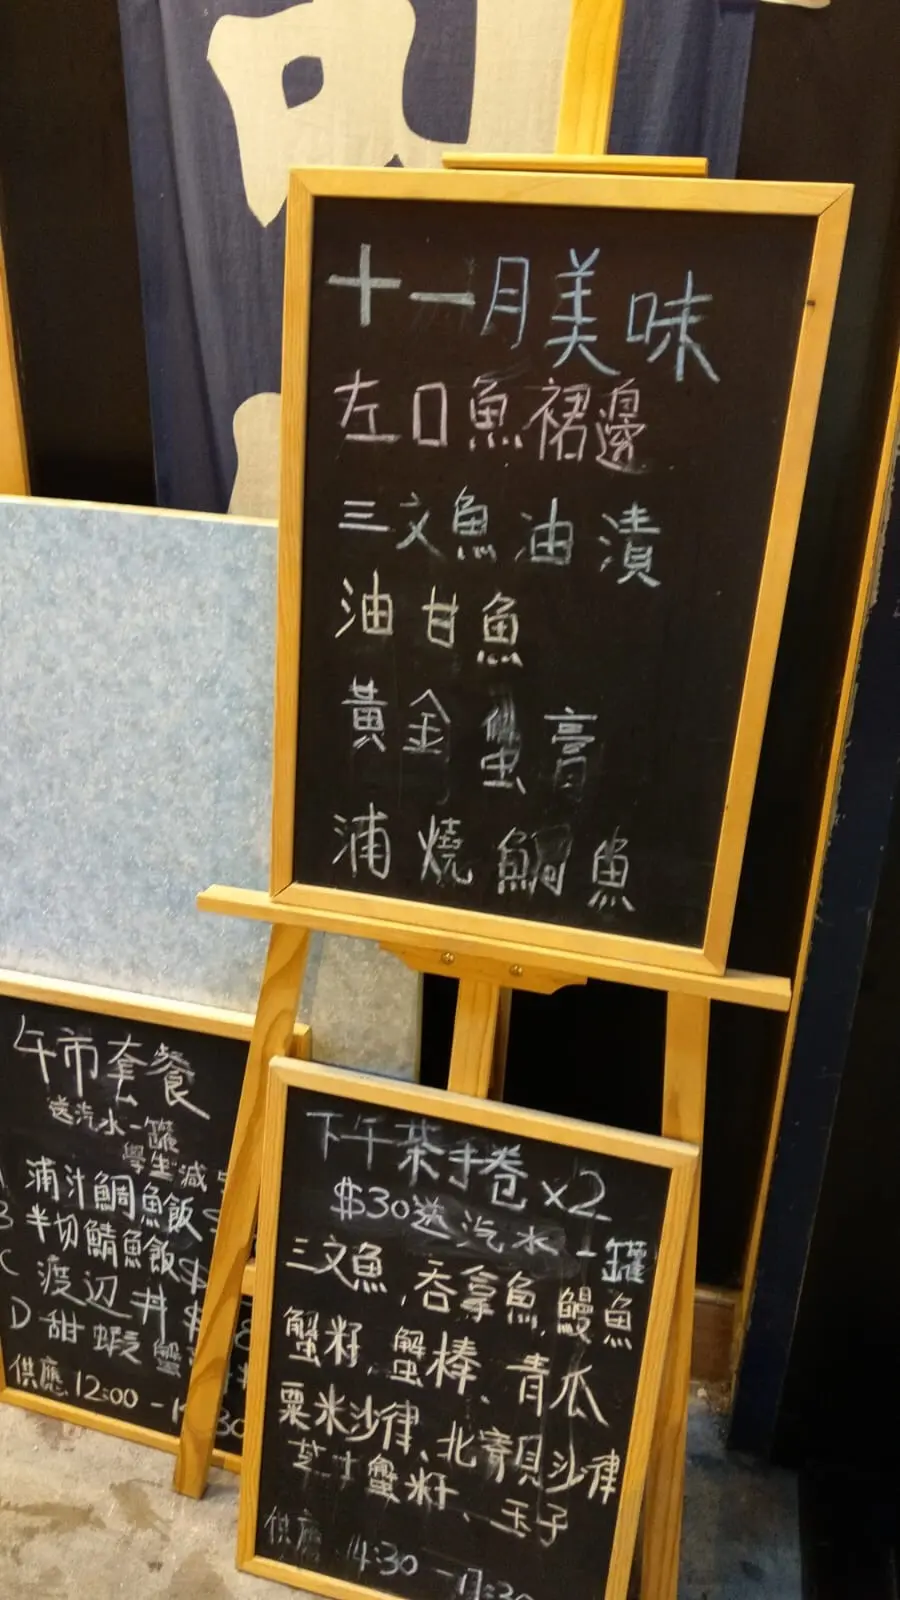 十一月美味
左口魚裙邊
三文魚油漬
油甘魚
黃金蟹膏
浦燒鯛魚
午市套餐
送汽水一罐
學生減
浦汁鯛魚飯 $
B 半切鯖魚飯 $
C 渡辺丼 $
D 甜蝦 蟹
供應 12:00 -
下午茶手卷 x2
$30送汽水一罐
三文魚、吞拿魚、鰻魚
蟹籽、蟹棒、青瓜
粟米沙律、北寄貝沙律
芝士蟹籽、玉子
供應 14:30 - 17:30